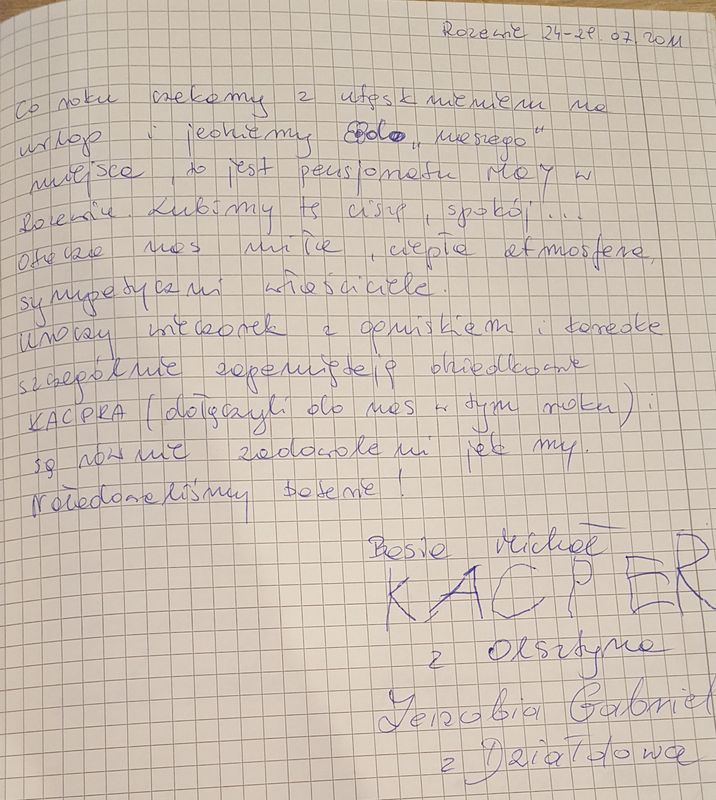 Rozewie 24-29.07.2011
Co roku czekamy z utęsknieniem na
urlop i jedziemy do „naszego"
miejsca, to jest pensjonatu MAY w
Rozewiu. Lubimy tę ciszę, spokój...
Otacza nas miła, ciepła atmosfera,
sympatyczni właściciele.
Uroczy wieczorek z ogniskiem i
szczególnie zapamiętają dziadkowie
KACPRA (dołączyli do nas w tym roku) i
są równie zadowoleni jak my.
Naładowaliśmy baterie!
Basia Michał
KACPER
z Olsztyna
Zenobia Gabriel
z Działdowa